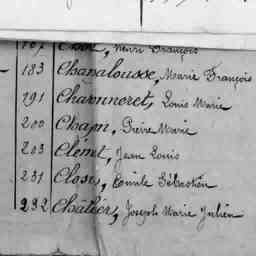 Henri François
183 Chapalousse, Marie François
191 Chavanneret, Louis Marie
200 Chapn, Pierre Marie
203 Clémet, Jean Louis
231 Clos, Sébastien
232 Chatier, Joseph Marie Julien